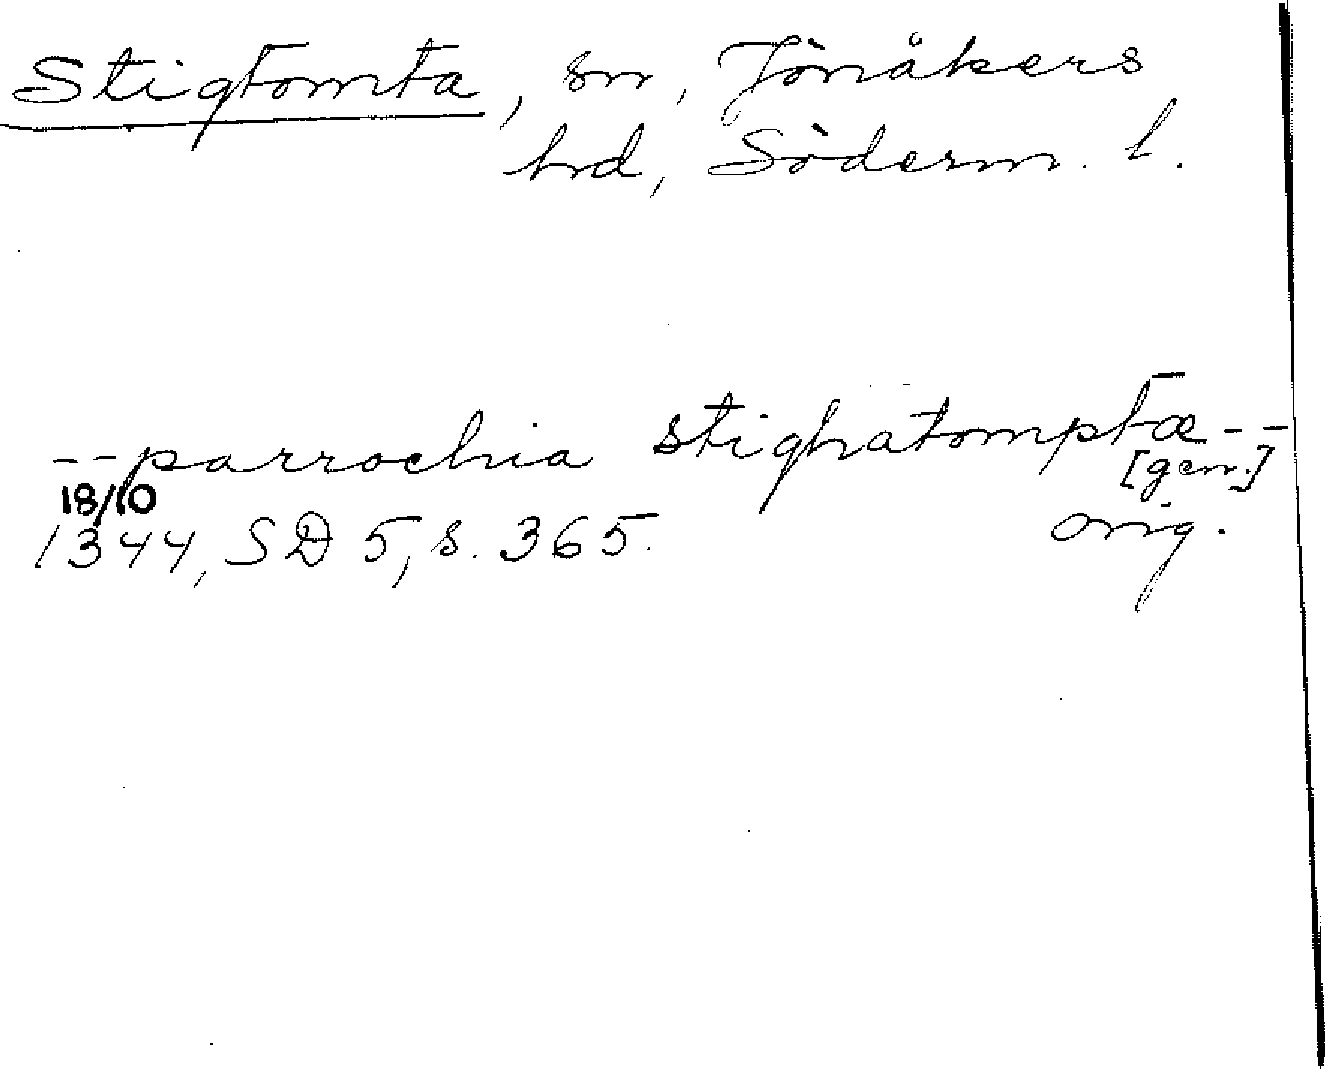 Stigtomta, sn, Jönåkers
hd, Söderm. l.
--parrochia stighatomptæ--
[gen.]
18/10
1344, SD 5, s. 365.
orig.